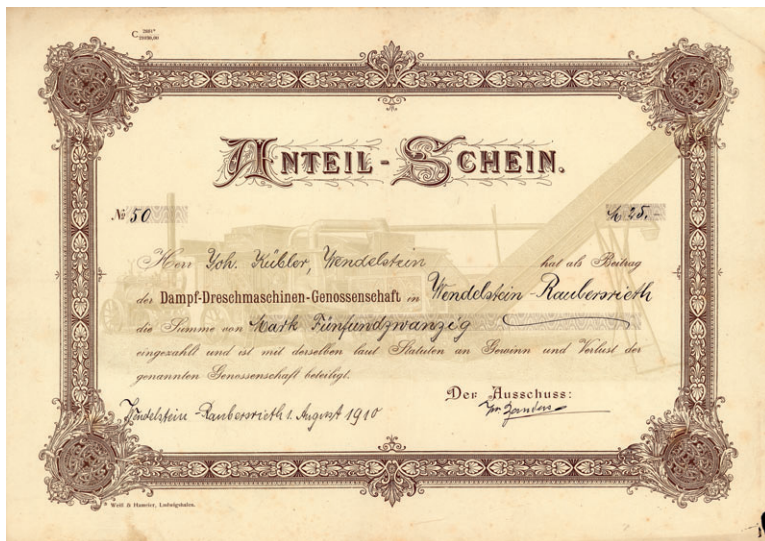 ANTEIL-SCHEIN.
№ 50 M 25.-
Herr Joh. Kübler, Wendelstein hat als Beitrag
der Dampf-Dreschmaschinen-Genossenschaft in Wendelstein-Raubersrieth
die Summe von Mark Fünfundzwanzig
eingezahlt und ist mit derselben laut Statuten an Gewinn und Verlust der
genannten Genossenschaft beteiligt.
Der Ausschuss:
Wendelstein-Raubersrieth 1. August 1910
Wolf &
Ludwigshafen.